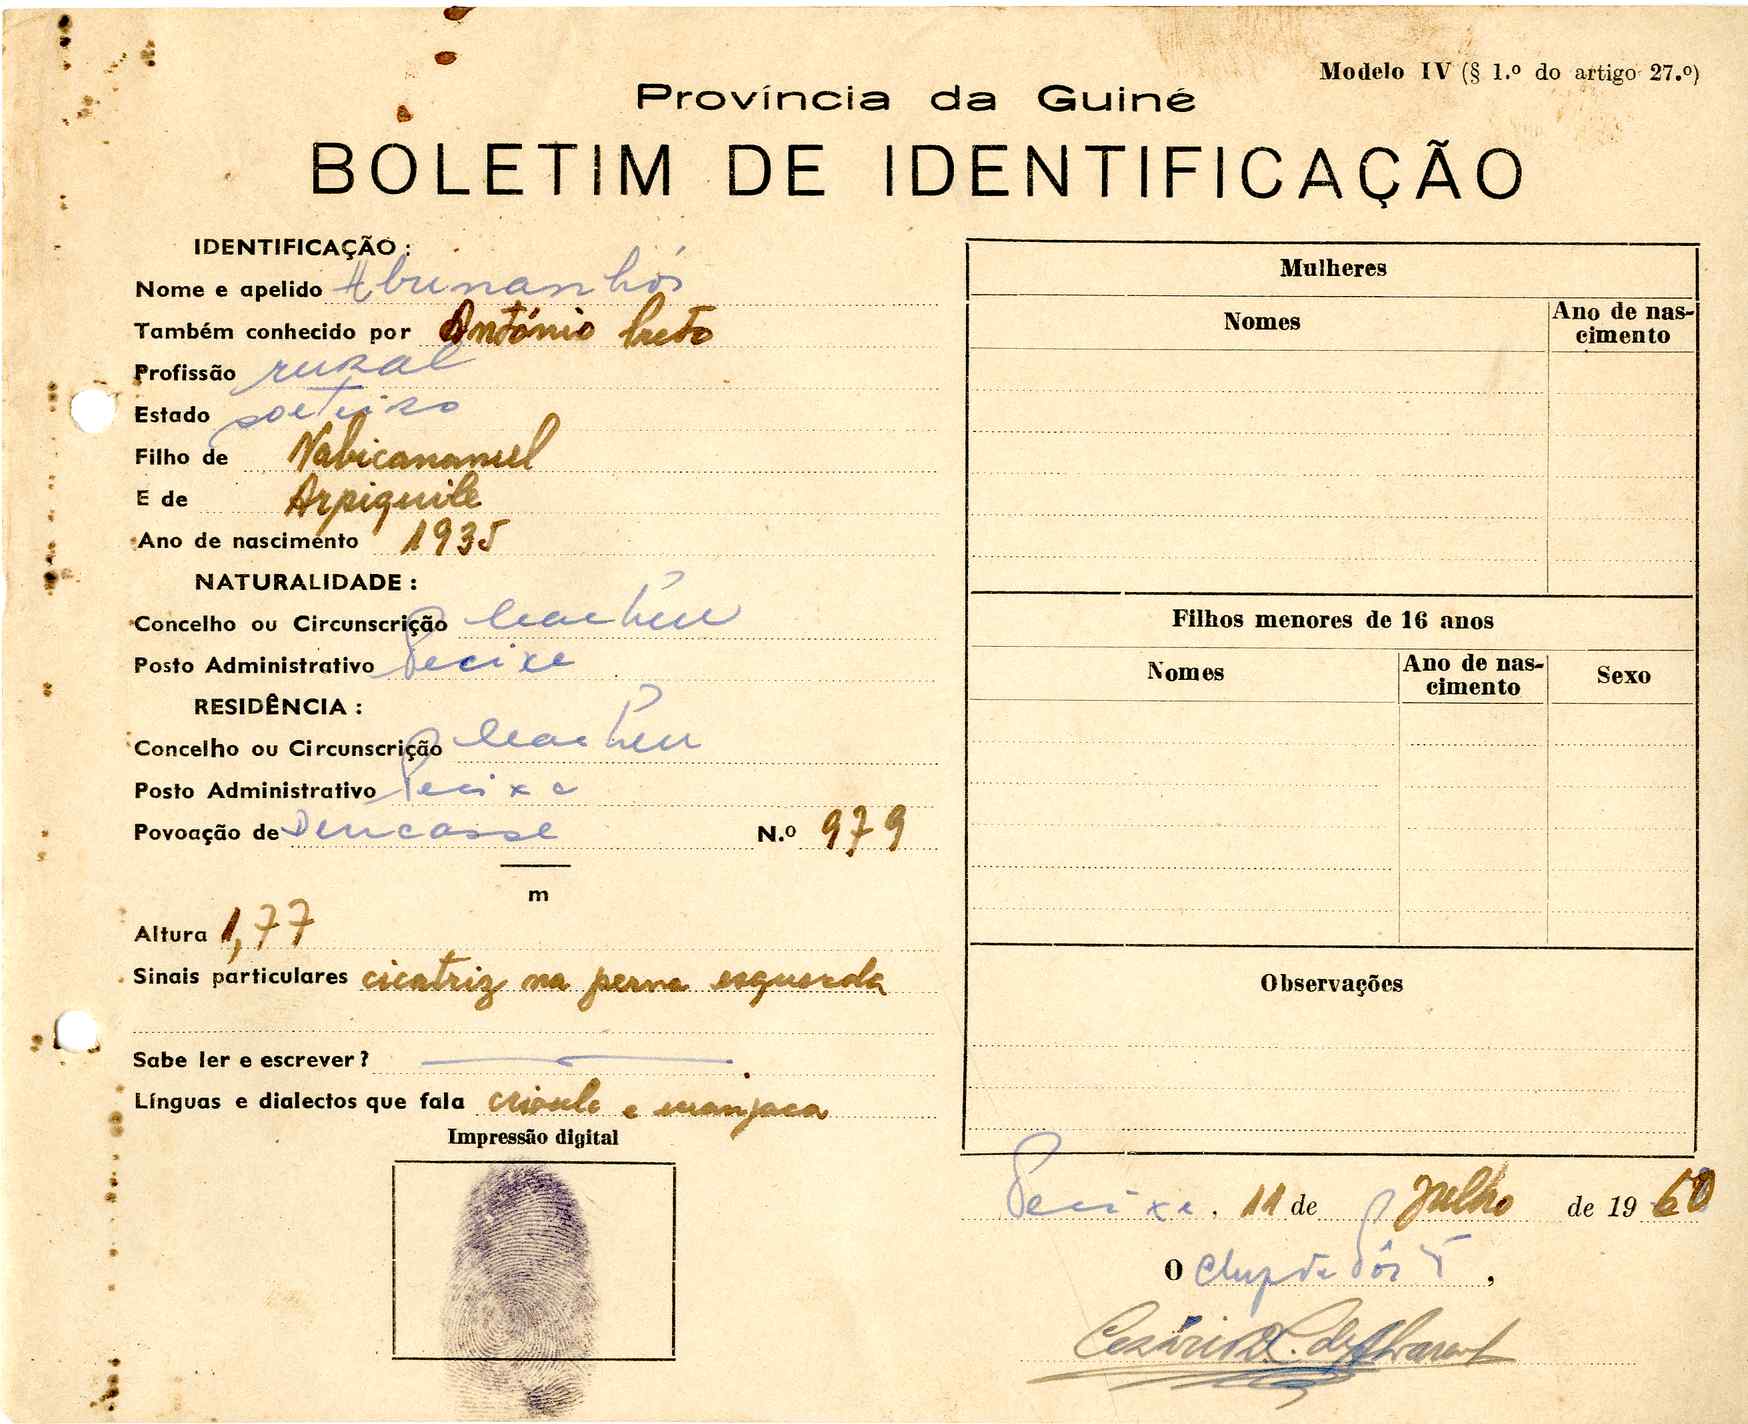 Modelo IV (§ 1.º do artigo 27.º)
Província da Guiné
BOLETIM DE IDENTIFICAÇÃO
IDENTIFICAÇÃO:
Nome e apelido Abunanhós
Também conhecido por António Preto
Profissão rural
Estado solteiro
Filho de Nabicanamel
E de Arpiquile
Ano de nascimento 1935
NATURALIDADE:
Concelho ou Circunscrição Cacheu
Posto Administrativo Pecixe
RESIDÊNCIA:
Concelho ou Circunscrição Cacheu
Posto Administrativo Pecixe
Povoação de Dencasse N.º 979
m
Altura 1,77
Sinais particulares cicatriz na perna esquerda
Sabe ler e escrever?
Línguas e dialectos que fala crioulo e manjaca
Impressão digital
Mulheres
Nomes
Ano de nascimento
Filhos menores de 16 anos
Nomes
Ano de nascimento
Sexo
Observações
Pecixe, 11 de Julho de 1960
O Chefe de Pôsto,